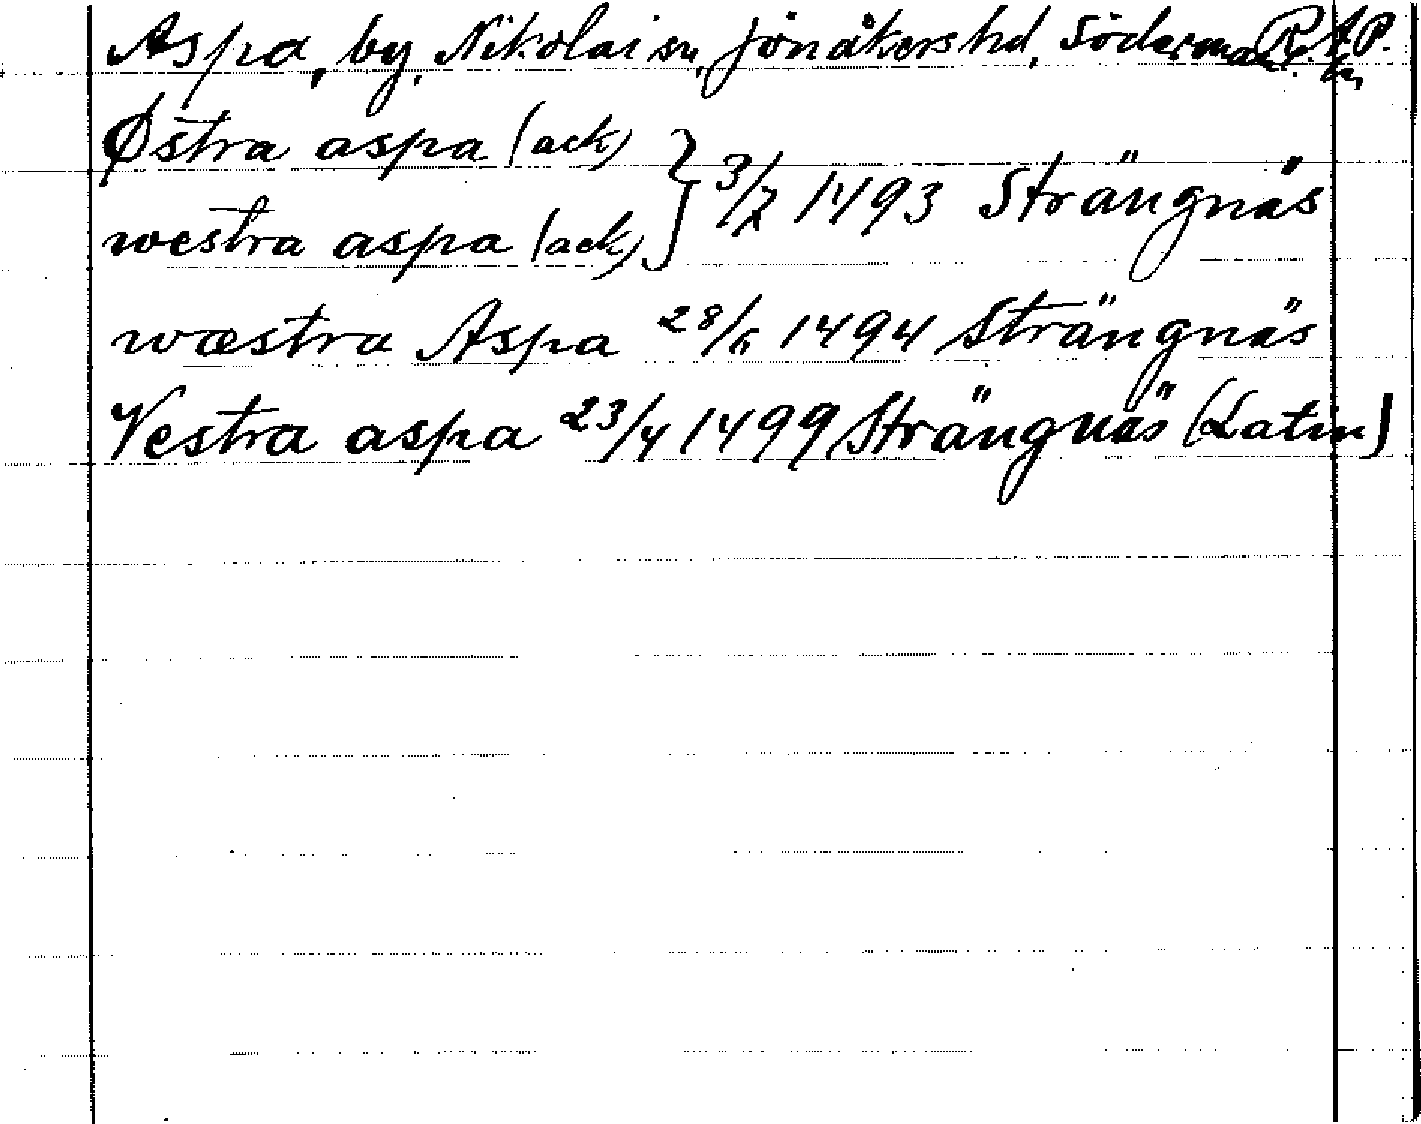 Aspa, by, Nikolai sn, Jönåkers hd, Söderman. R.A.P.
Østra aspa (ack)
westra aspa (ack) } 3/2 1493 Strängnäs
wæstra Aspa 28/6 1494 Strängnäs
Vestra aspa 23/4 1499 Strängnäs (Latin)